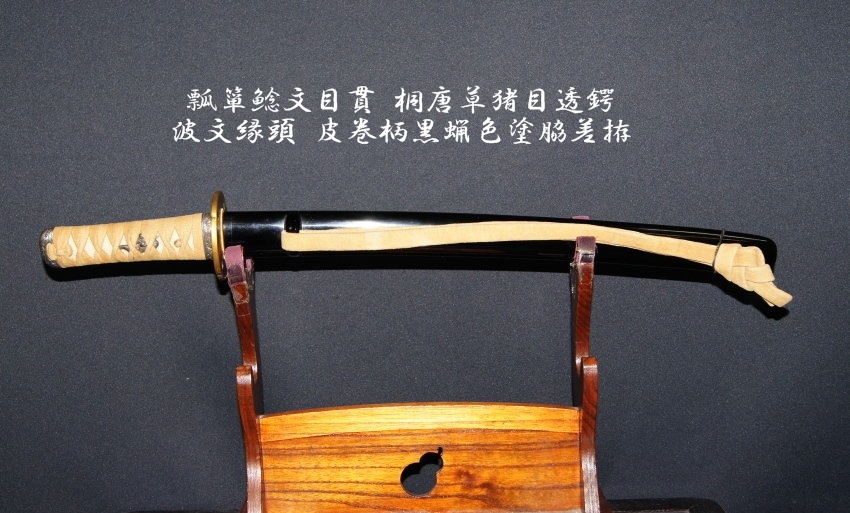 瓢箪鯰文目貫 桐唐草猪目透鍔
波文縁頭 皮巻柄黒蝋色塗脇差拵